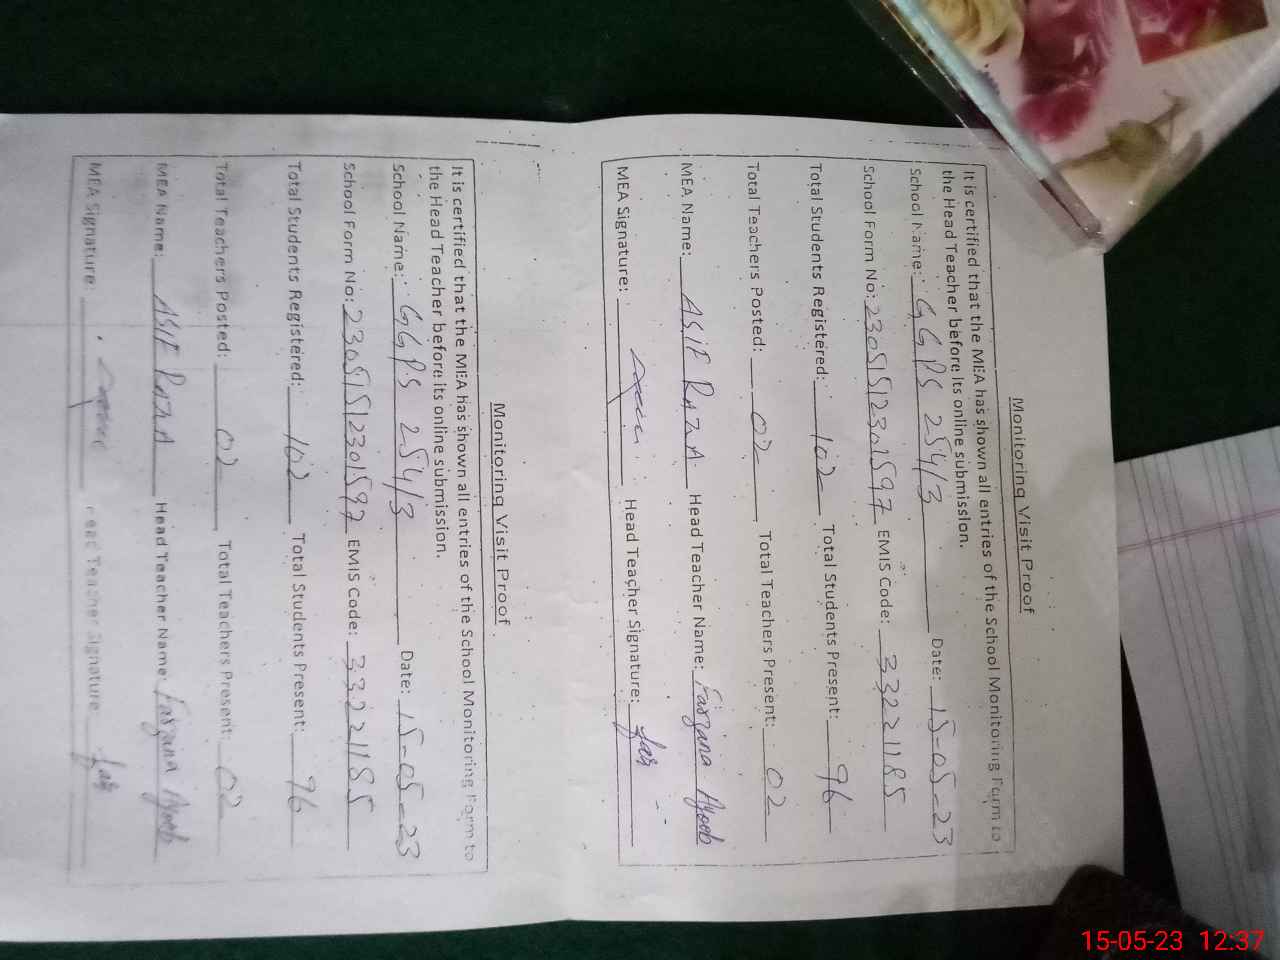 Monitoring Visit Proof
It is certified that the MEA has shown all entries of the School Monitoring Form to
the Head Teacher before its online submission.
School Name: GGPS 254/3 Date: 15-05-23
School Form No: 23051512301597 EMIS Code: 33221185
Total Students Registered: 102 Total Students Present: 96
Total Teachers Posted: 02 Total Teachers Present: 02
MEA Name: ASIF RAZA Head Teacher Name: Farzana Ayoob
MEA Signature: Head Teacher Signature: far
Monitoring Visit Proof
It is certified that the MEA has shown all entries of the School Monitoring Form to
the Head Teacher before its online submission.
School Name: GGPS 254/3 Date: 15-05-23
School Form No: 23051512301597 EMIS Code: 33221185
Total Students Registered: 102 Total Students Present: 96
Total Teachers Posted: 02 Total Teachers Present: 02
MEA Name: ASIF RAZA Head Teacher Name: Farzana Ayoob
MEA Signature: Head Teacher Signature far
15-05-23 12:37